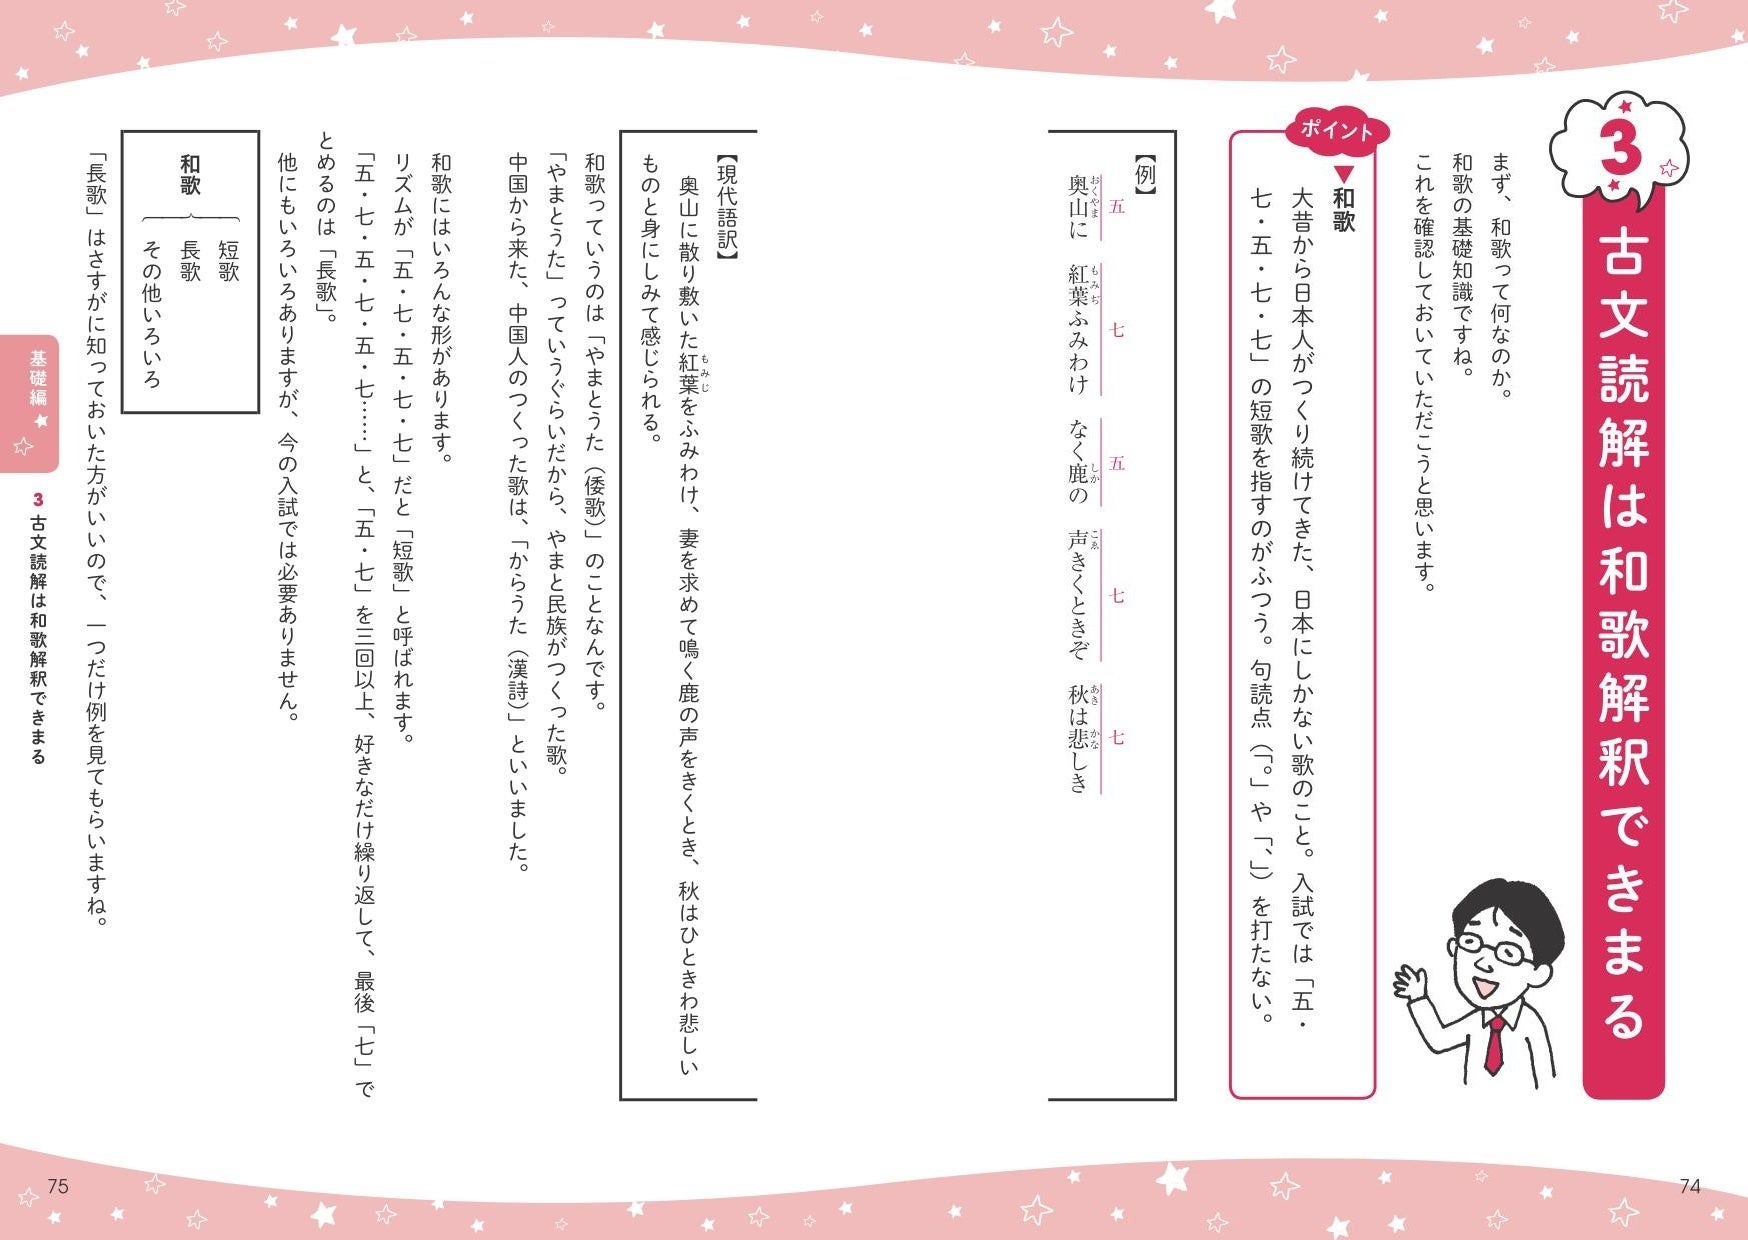 3
古文読解は和歌解釈できまる
まず、和歌って何なのか。
和歌の基礎知識ですね。
これを確認しておいていただこうと思います。
ポイント
▼和歌
大昔から日本人がつくり続けてきた、日本にしかない歌のこと。入試では「五・
七・五・七・七」の短歌を指すのがふつう。句読点（「。」や「、」）を打たない。
【例】
五 七 五 七 七
奥山に 紅葉ふみわけ なく鹿の 声きくときぞ 秋は悲しき
おくやま もみぢ しか こゑ あき かな
【現代語訳】
奥山に散り敷いた紅葉をふみわけ、妻を求めて鳴く鹿の声をきくとき、秋はひときわ悲しい
もみじ
ものと身にしみて感じられる。
和歌っていうのは「やまとうた（倭歌）」のことなんです。
「やまとうた」っていうぐらいだから、やまと民族がつくった歌。
中国から来た、中国人のつくった歌は、「からうた（漢詩）」といいました。
和歌にはいろんな形があります。
リズムが「五・七・五・七・七」だと「短歌」と呼ばれます。
「五・七・五・七・五・七……」と、「五・七」を三回以上、好きなだけ繰り返して、最後「七」で
とめるのは「長歌」。
他にもいろいろありますが、今の入試では必要ありません。
和歌
短歌
長歌
その他いろいろ
「長歌」はさすがに知っておいた方がいいので、一つだけ例を見てもらいますね。
基礎編
3 古文読解は和歌解釈できまる
74
75